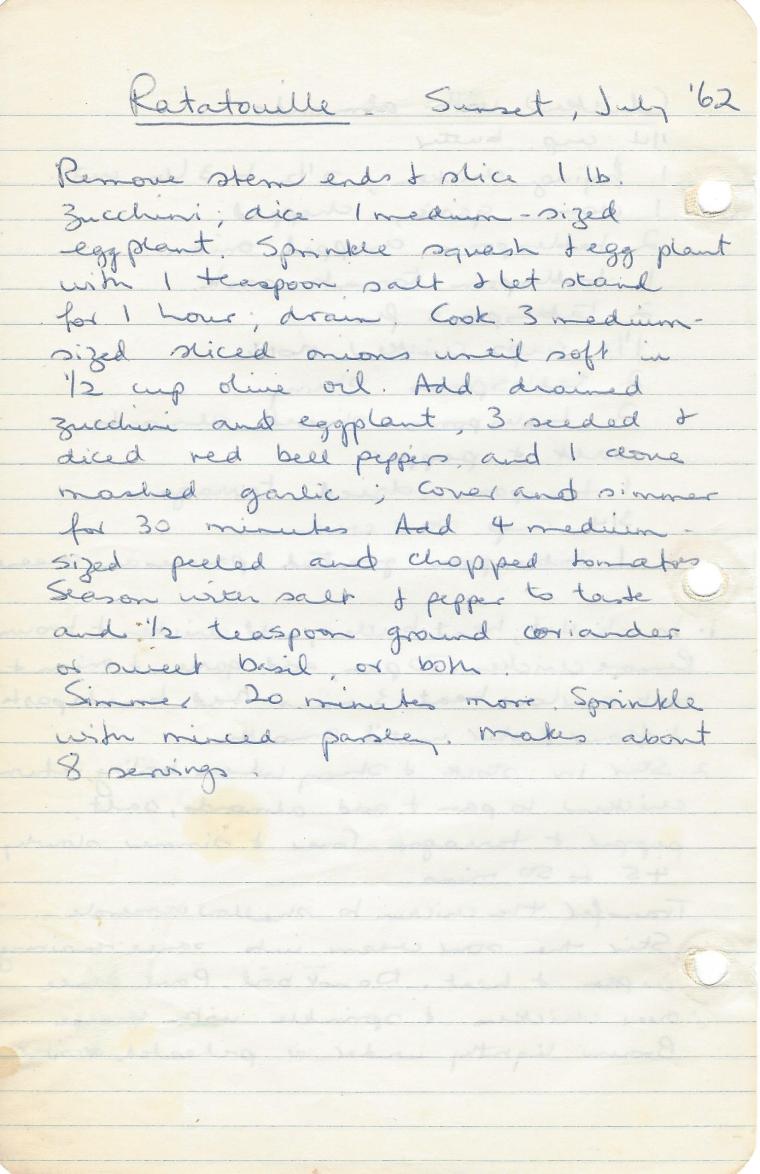 Ratatouille. Sunset, July '62
Remove stem ends & slice 1 lb.
zucchini; dice 1 medium-sized
eggplant. Sprinkle squash & egg plant
with 1 teaspoon salt & let stand
for 1 hour; drain. Cook 3 medium-
sized sliced onions until soft in
1/2 cup olive oil. Add drained
zucchini and eggplant, 3 seeded &
diced red bell peppers, and 1 clove
mashed garlic; cover and simmer
for 30 minutes. Add 4 medium-
sized peeled and chopped tomatoes
Season with salt & pepper to taste
and 1/2 teaspoon ground coriander
or sweet basil, or both.
Simmer 20 minutes more. Sprinkle
with minced parsley. Makes about
8 servings.